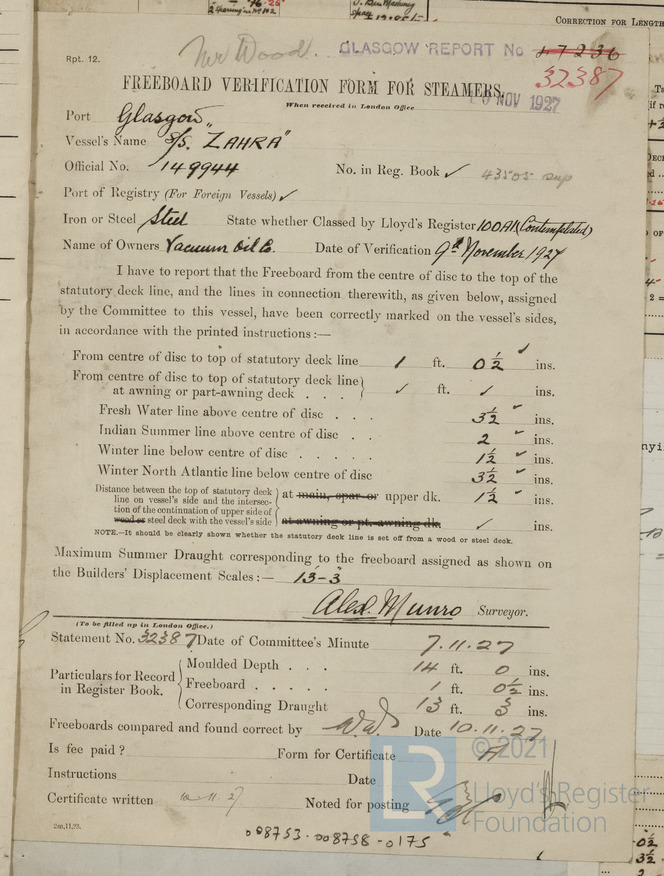 CORRECTION FOR LENGTH
Rpt. 12.
Mr Wood.
GLASGOW REPORT No 47236
32387
FREEBOARD VERIFICATION FORM FOR STEAMERS.
When received in London Office
NOV 1927
Port Glasgow
Vessel's Name S/S. "ZAHRA"
Official No. 149944 No. in Reg. Book ✓ 43505 sup
Port of Registry (For Foreign Vessels) ✓
Iron or Steel Steel State whether Classed by Lloyd's Register 100A1 (Contemplated)
Name of Owners Vacuum Oil Co. Date of Verification 9th November 1927
I have to report that the Freeboard from the centre of disc to the top of the
statutory deck line, and the lines in connection therewith, as given below, assigned
by the Committee to this vessel, have been correctly marked on the vessel's sides,
in accordance with the printed instructions:—
From centre of disc to top of statutory deck line 1 ft. 0½ ✓ ins.
From centre of disc to top of statutory deck line
at awning or part-awning deck . . . ✓ ft. ✓ ins.
Fresh Water line above centre of disc . . . 3½ ✓ ins.
Indian Summer line above centre of disc . . 2 ✓ ins.
Winter line below centre of disc . . . . . 1½ ✓ ins.
Winter North Atlantic line below centre of disc 3½ ✓ ins.
Distance between the top of statutory deck
line on vessel's side and the intersec-
tion of the continuation of upper side of
wood or steel deck with the vessel's side
at main, spar or upper dk. 1½ ✓ ins.
at awning or pt. awning dk. ✓ ins.
NOTE.—It should be clearly shown whether the statutory deck line is set off from a wood or steel deck.
Maximum Summer Draught corresponding to the freeboard assigned as shown on
the Builders' Displacement Scales:— 13-3
Alex. Munro Surveyor.
(To be filled up in London Office.)
Statement No. 32387 Date of Committee's Minute 7.11.27
Particulars for Record
in Register Book.
Moulded Depth . . . 14 ft. 0 ins.
Freeboard . . . . . 1 ft. 0½ ins.
Corresponding Draught 13 ft. 3 ins.
Freeboards compared and found correct by Date 10.11.27
Is fee paid? Form for Certificate
Instructions Date
Certificate written 10.11.27 Noted for posting
2m,11,23.
© 2021
LR
Lloyd's Register
Foundation
008753-008758-0175